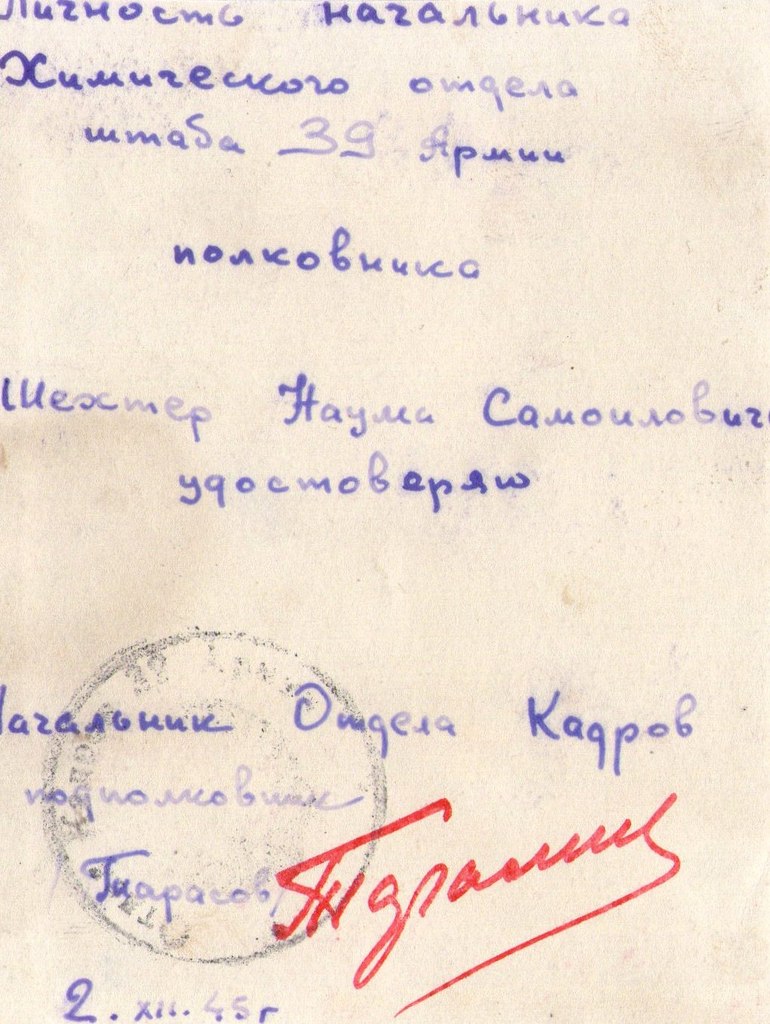 Личность начальника
Химического отдела
штаба 39 Армии
полковника
Шехтер Наума Самоилович
удостоверяю
Начальник Отдела Кадров
подполковник
/Тарасов/
2. XII. 45 г